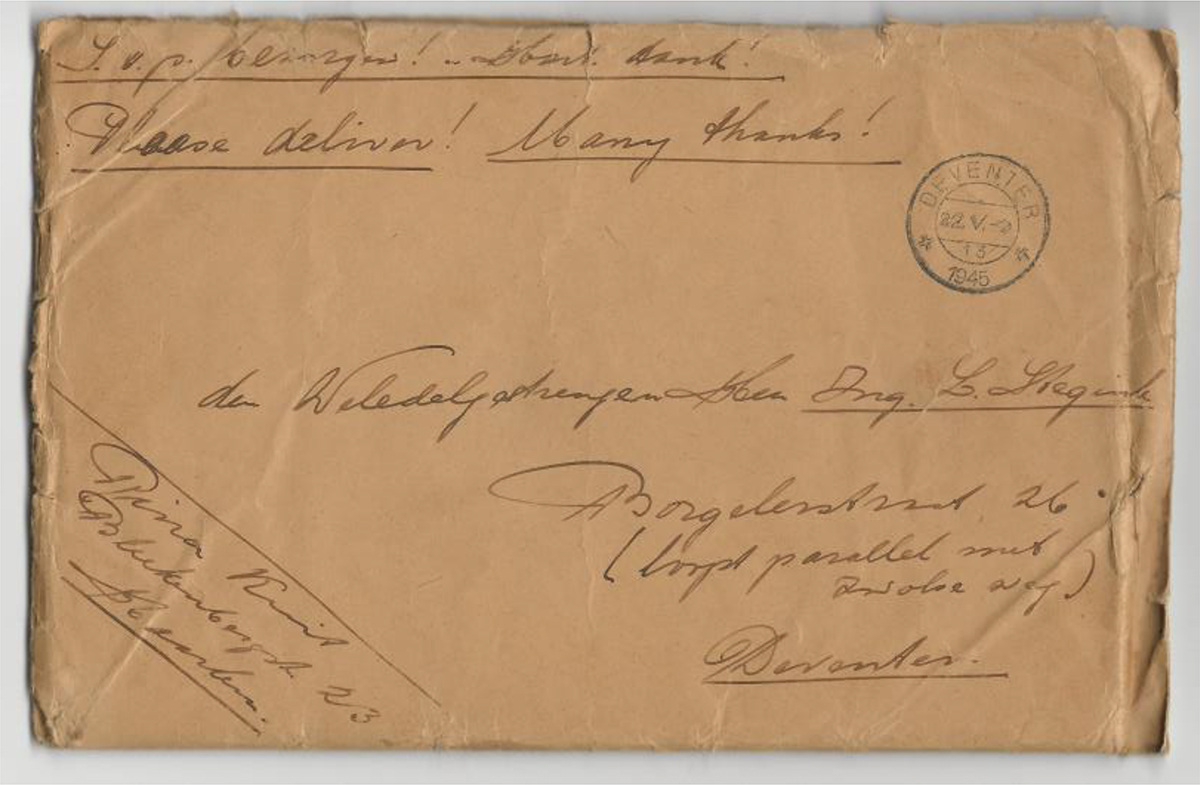 S. v. p. bezorgen! .. Hart. dank!
Please deliver! Many thanks!
DEVENTER
22.V.-2
13
1945
den Weledelgestrengen Heer Ing. L. Stegink
Borgelerstraat 26
(loopt parallel met
Zwolse weg)
Deventer.
Rina
23
Haarlem.